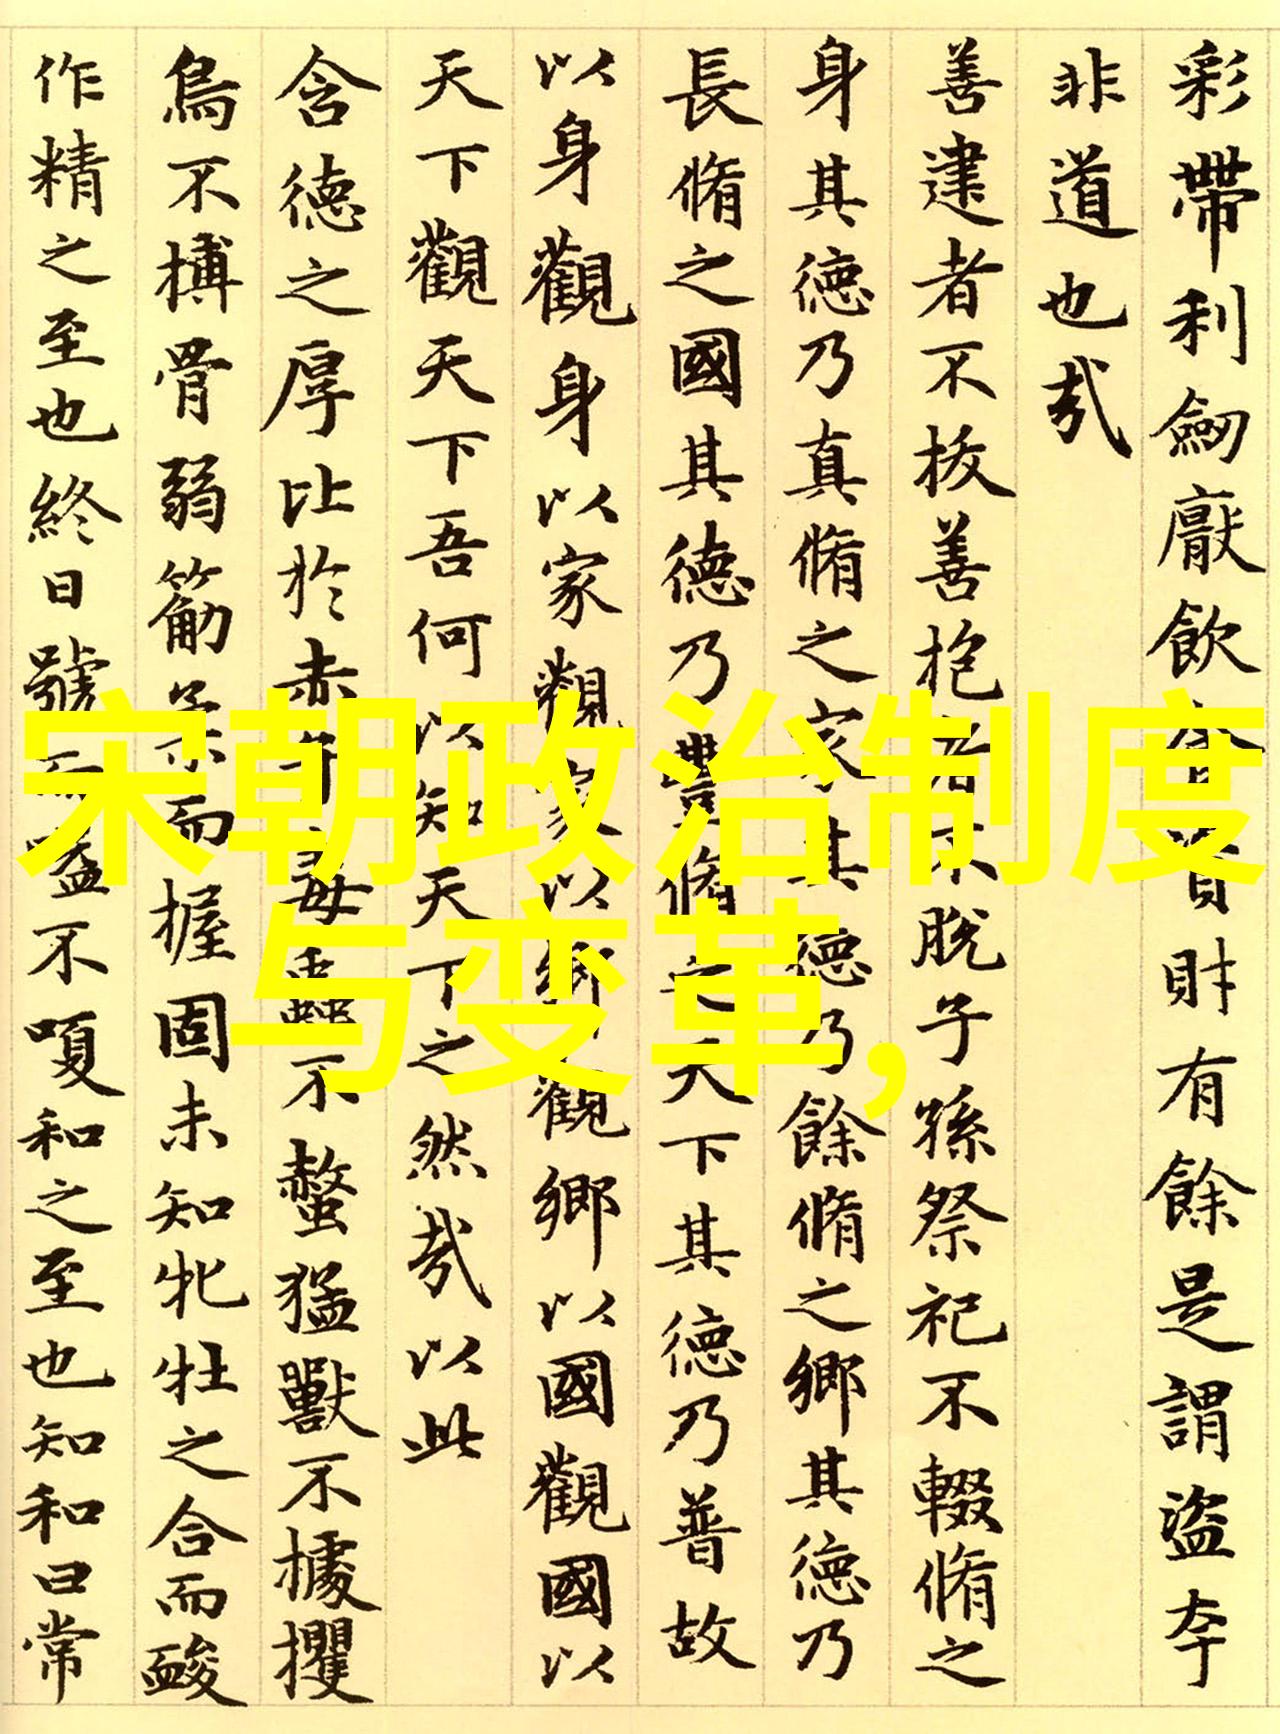 彩帶利劒厭飲食資財有餘是謂盜夸
非道也哉
善建者不拔善抱者不脫子孫祭祀不輟脩之
身其德乃真脩之家其德乃餘脩之鄉其德乃
長脩之國其德乃豐脩之天下其德乃普故
以身觀身以家觀家以鄉觀鄉以國觀國以
天下觀天下吾何以知天下之然哉以此
含德之厚比於赤子毒蟲不螫猛獸不據攫
鳥不搏骨弱筋柔而握固未知牝牡之合而酸
作精之至也終日號而嗌不嗄和之至也知和曰常
宋朝政治制度
与变革,